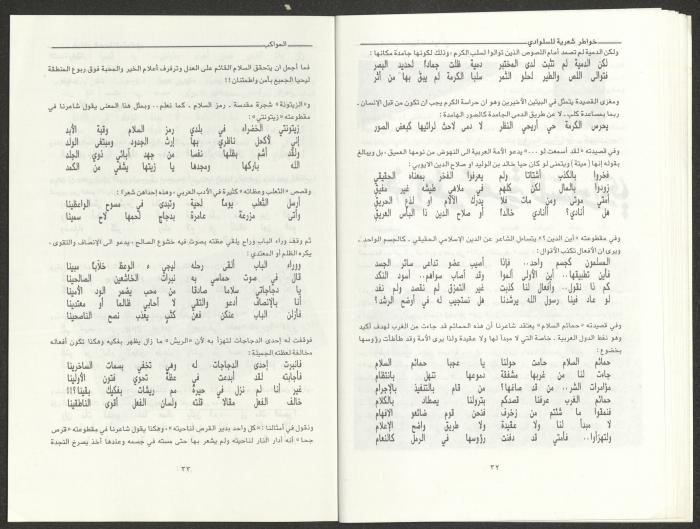 خواطر شعرية للسلوادي
ولكن الدمية لم تصمد أمام اللصوص الذين توالوا لسلب الكرم ، وذلك لكونها جامدة مكانها :
لكن الدمية لم تثبت لدى المختبر دمية ظلت جماداً لحديد البصر
فتوالى اللص والطير لحلو الثمر سلبا الكرمة لم يبق بها من أثر
ومغزى القصيدة يتمثل في البيتين الأخيرين وهو ان حراسة الكرم يجب ان تكون من قبل الإنسان ،
ربما بمساعدة كلب ، لا عن طريق الدمى الجامدة كالصور الهامدة :
يحرس الكرمة حي أريحي النظر لا دمى لاحت لرائيها كبعض الصور
وفي قصيدته « لقد أسمعت لو ... » يدعو الأمة العربية الى النهوض من نومها العميق ، بل ويبالغ
بقوله إنها ( ميتة ) ويتمنى لو كان حيا خالد بن الوليد او صلاح الدين الايوبي :
فخروا بالكذب أشتاتا ولم يعرفوا الفخر بمعناه الحقيقي
زودوا بالمال لكن كلهم في ملاهي غيه غير مفيق
أمتي موتى ومن مات فلا يدرك الآلام او لذع الحريق
هل أنادي؟ أأنادي خالداً أو صلاح الدين ذا البأس العريق
وفي مقطوعته « أين الدين ؟» يتساءل الشاعر عن الدين الإسلامي الحقيقي .. كالجسم الواحد ..
ويرى ان الأفعال تكذب الأقوال :
المسلمون كجسم واحد .. فإذا أصيب عضو تداعى سائر الجسد
فأين تطبيقها .. أين الأولى ألموا وقد أصاب سواهم .. أسود النكد
كم ذا نقول .. وأفعال لنا كذبت غير التمزق لم نقصد ولم نفد
لو عاد فينا رسول الله يرشدنا هل نستجيب له في أوضح الرشد؟
وفي قصيدته « حمائم السلام » يعتقد شاعرنا أن هذه الحمائم قد جاءت من الغرب لهدف أكيد
وهو نفط الدول العربية . خاصة التي لا مبدأ لها ولا عقيدة ولنا يرى الأمة وقد طأطأت رؤوسها
بخضوع :
حمائم السلام حامت حولنا يا عجبا حمائم السلام
جاءت لنا من غربها مشفقة دموعها تنهل بانتقام
مؤامرات الشر .. من قد صاغها؟ من قام بالتنفيذ بالإجرام
حمائم الغرب عرفنا قصدكم بترولنا يصطاد بالكلام
فنمقوا ما شئتم من زخرف فنحن قوم ضائعو الافهام
لا مبدأ لنا ولا عقيدة ولا طريق واضح الإعلام
ولتهزأوا .. فأمتي قد دفنت رؤوسها في الرمل كالنعام
٣٢
المواكب
فما أجمل ان يتحقق السلام القائم على العدل وترفرف أعلام الخير والمحبة فوق ربوع المنطقة
ليحيا الجميع بأمن واطمئنان !!
و« الزيتونة » شجرة مقدسة . رمز السلام .. كما نعلم .. وبمثل هذا المعنى يقول شاعرنا في
مقطوعته « زيتونتي » :
زيتونتي الخضراء في بلدي رمز السلام وقبة الأبد
إني لأكحل ناظري بها إرث الجدود ومبتغى الولد
ولقد أشم بظلها نفسا من جهد آبائي ذوي الجلد
الله باركها ومجدها يا زيتها يشفي من الكمد
وقصص « الثعلب وعظاته » كثيرة في الأدب العربي ، وهذه إحداهن شعراً :
أرسل الثعلب يوماً لحية وتبدى في مسوح الواعظينا
وأتى مزرعة عامرة بدجاج لحمها لاح سمينا
ثم وقف وراء الباب وراح يلقي عظته بصوت فيه خشوع الصالح ، يدعو الى الإنصاف والتقوى ،
يكره الظلم أو المعتدي :
ووراء الباب ألقى رحله ليجيء الوعظ خلاّباً مبينا
قال في صوت حماسي به نبرات الخاشعين الصالحينا
يا دجاجاتي سلاما صادقا من محب يضمر الود الأمينا
أنا بالإنصاف أدعو والتقي لا أحابي ظالما أو معتدينا
فأزلن الباب عنكن فعن كثب يعذب نصح الناصحينا
فوقفت له إحدى الدجاجات لتهزأ به لأن « الريش » ما زال يظهر بفكيه وهكذا تكون أفعاله
مخالفة لعظته الجميلة :
فانبرت إحدى الدجاجات له وهي تخفي بسمات الساخرينا
فأجابته لقد أبدعت في عظة تحوي فنون الأولينا
غير أنا لم نزل في حيرة مم ريشات بفكيك بقينا؟!!
خالف الفعل مقالا قلته ولسان الفعل أقوى الناطقينا
ونقول في أمثالنا : « كل واحد بدير القرص لناحيته » ، وهكذا يقول شاعرنا في مقطوعته « قرص
جحا » أنه أدار النار لناحيته ولم يشعر بها حتى مسته في جسمه وعندها أخذ يصرخ النجدة
٣٣